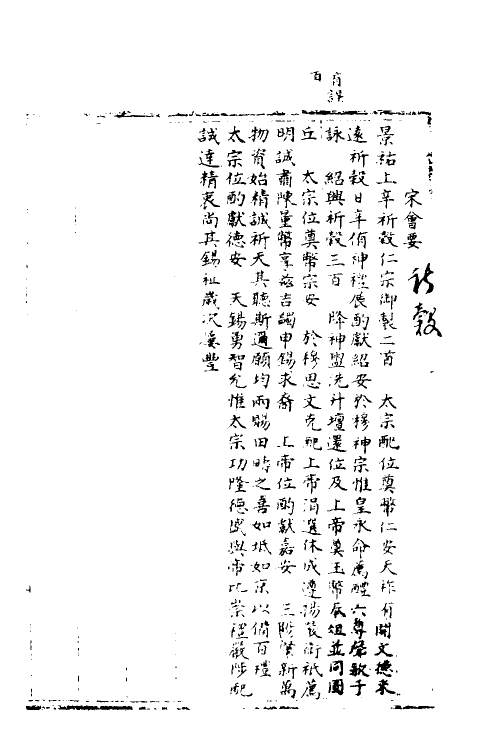 肓誤
百
宋會要
祈穀
景祐上辛祈穀仁宗御製二首　太宗配位奠幣仁安天祚有開文德來
遠祈穀日辛侑神禮展酌獻紹安於穆神宗惟皇永命薦醴六尊聲歌千
詠　紹興祈穀三首　降神盥洗升壇還位及上帝奠玉幣奉俎並同圜
丘　太宗位奠幣宗安　於穆思文克配上帝涓選休成遵揚嚴衛祇薦
明誠肅陳量幣享茲吉蠲申錫來裔　上帝位酌獻嘉安　三陽肇新萬
物資始精誠祈天其聽斯邇願均雨暘田疇之喜如坻如京以備百禮
太宗位酌獻德安　天錫勇智允惟太宗功隆德盛與帝比崇禮嚴陟配
誠達精衷尚其錫祉歲次屢豐